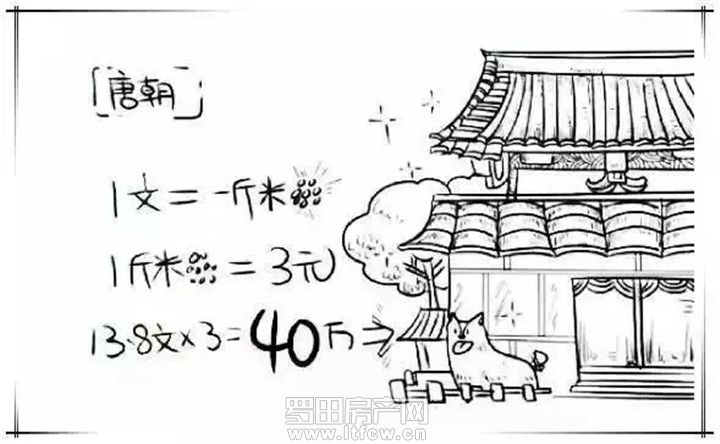 「唐朝」
1文=一斤米
1斤米=3元
13.8文×3=40万⇒
罗田房产网
www.ltfcw.cn